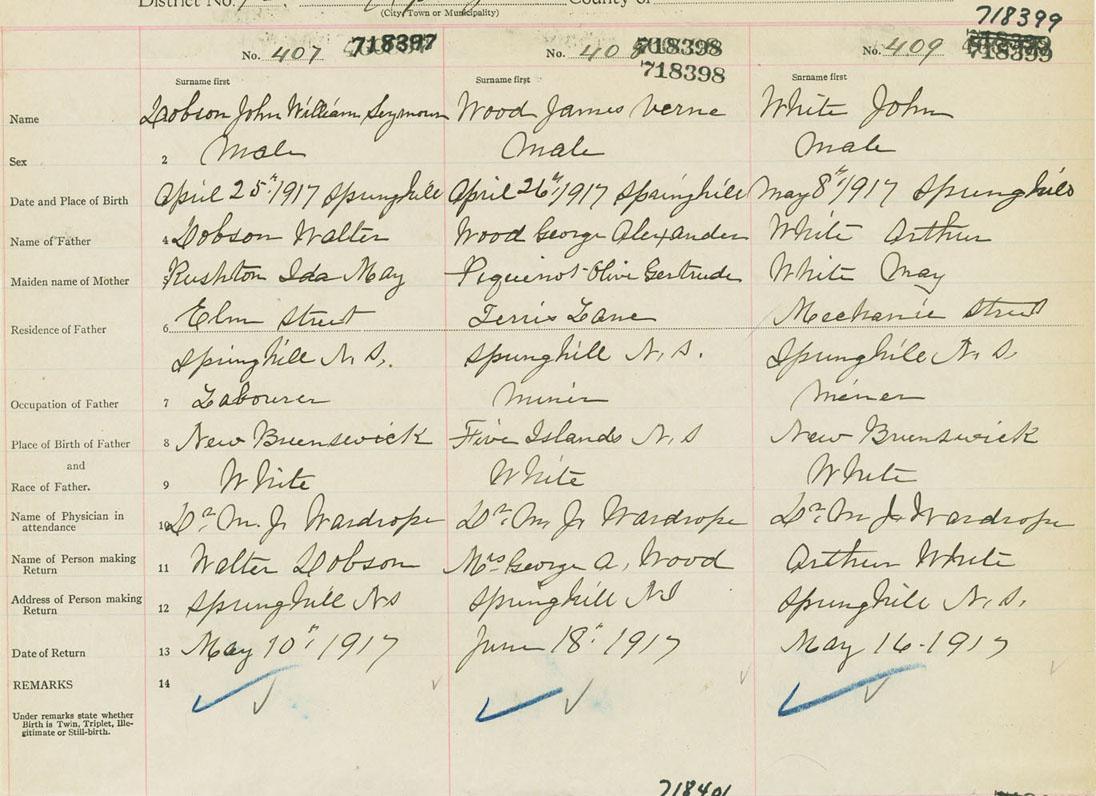 District No. County of
(City, Town or Municipality)
718399
No. 407 718397 No. 40 718398 No. 409 718399
718398
Surname first Surname first Surname first
Name Dobson John William Seymour Wood James Verne White John
Sex 2 Male Male Male
Date and Place of Birth April 25" 1917 Springhill April 26" 1917 Springhill May 8" 1917 Springhill
Name of Father 4 Dobson Walter Wood George Alexander White Arthur
Maiden name of Mother 5 Rushton Ida May Olive Gertrude White May
Residence of Father 6 Elm Street Ferris Lane Mechanic Street
Springhill N.S. Springhill N.S. Springhill N.S.
Occupation of Father 7 Labourer Miner Miner
Place of Birth of Father 8 New Brunswick Five Islands N.S New Brunswick
and
Race of Father. 9 White White White
Name of Physician in
attendance 10 Dr. M. J. Wardrope Dr. M. J. Wardrope Dr. M. J. Wardrope
Name of Person making
Return 11 Walter Dobson Mrs George A. Wood Arthur White
Address of Person making
Return 12 Springhill NS Springhill NS Springhill N.S.
Date of Return 13 May 10" 1917 June 18" 1917 May 16-1917
REMARKS 14
Under remarks state whether
Birth is Twin, Triplet, Ille-
gitimate or Still-birth.
718401